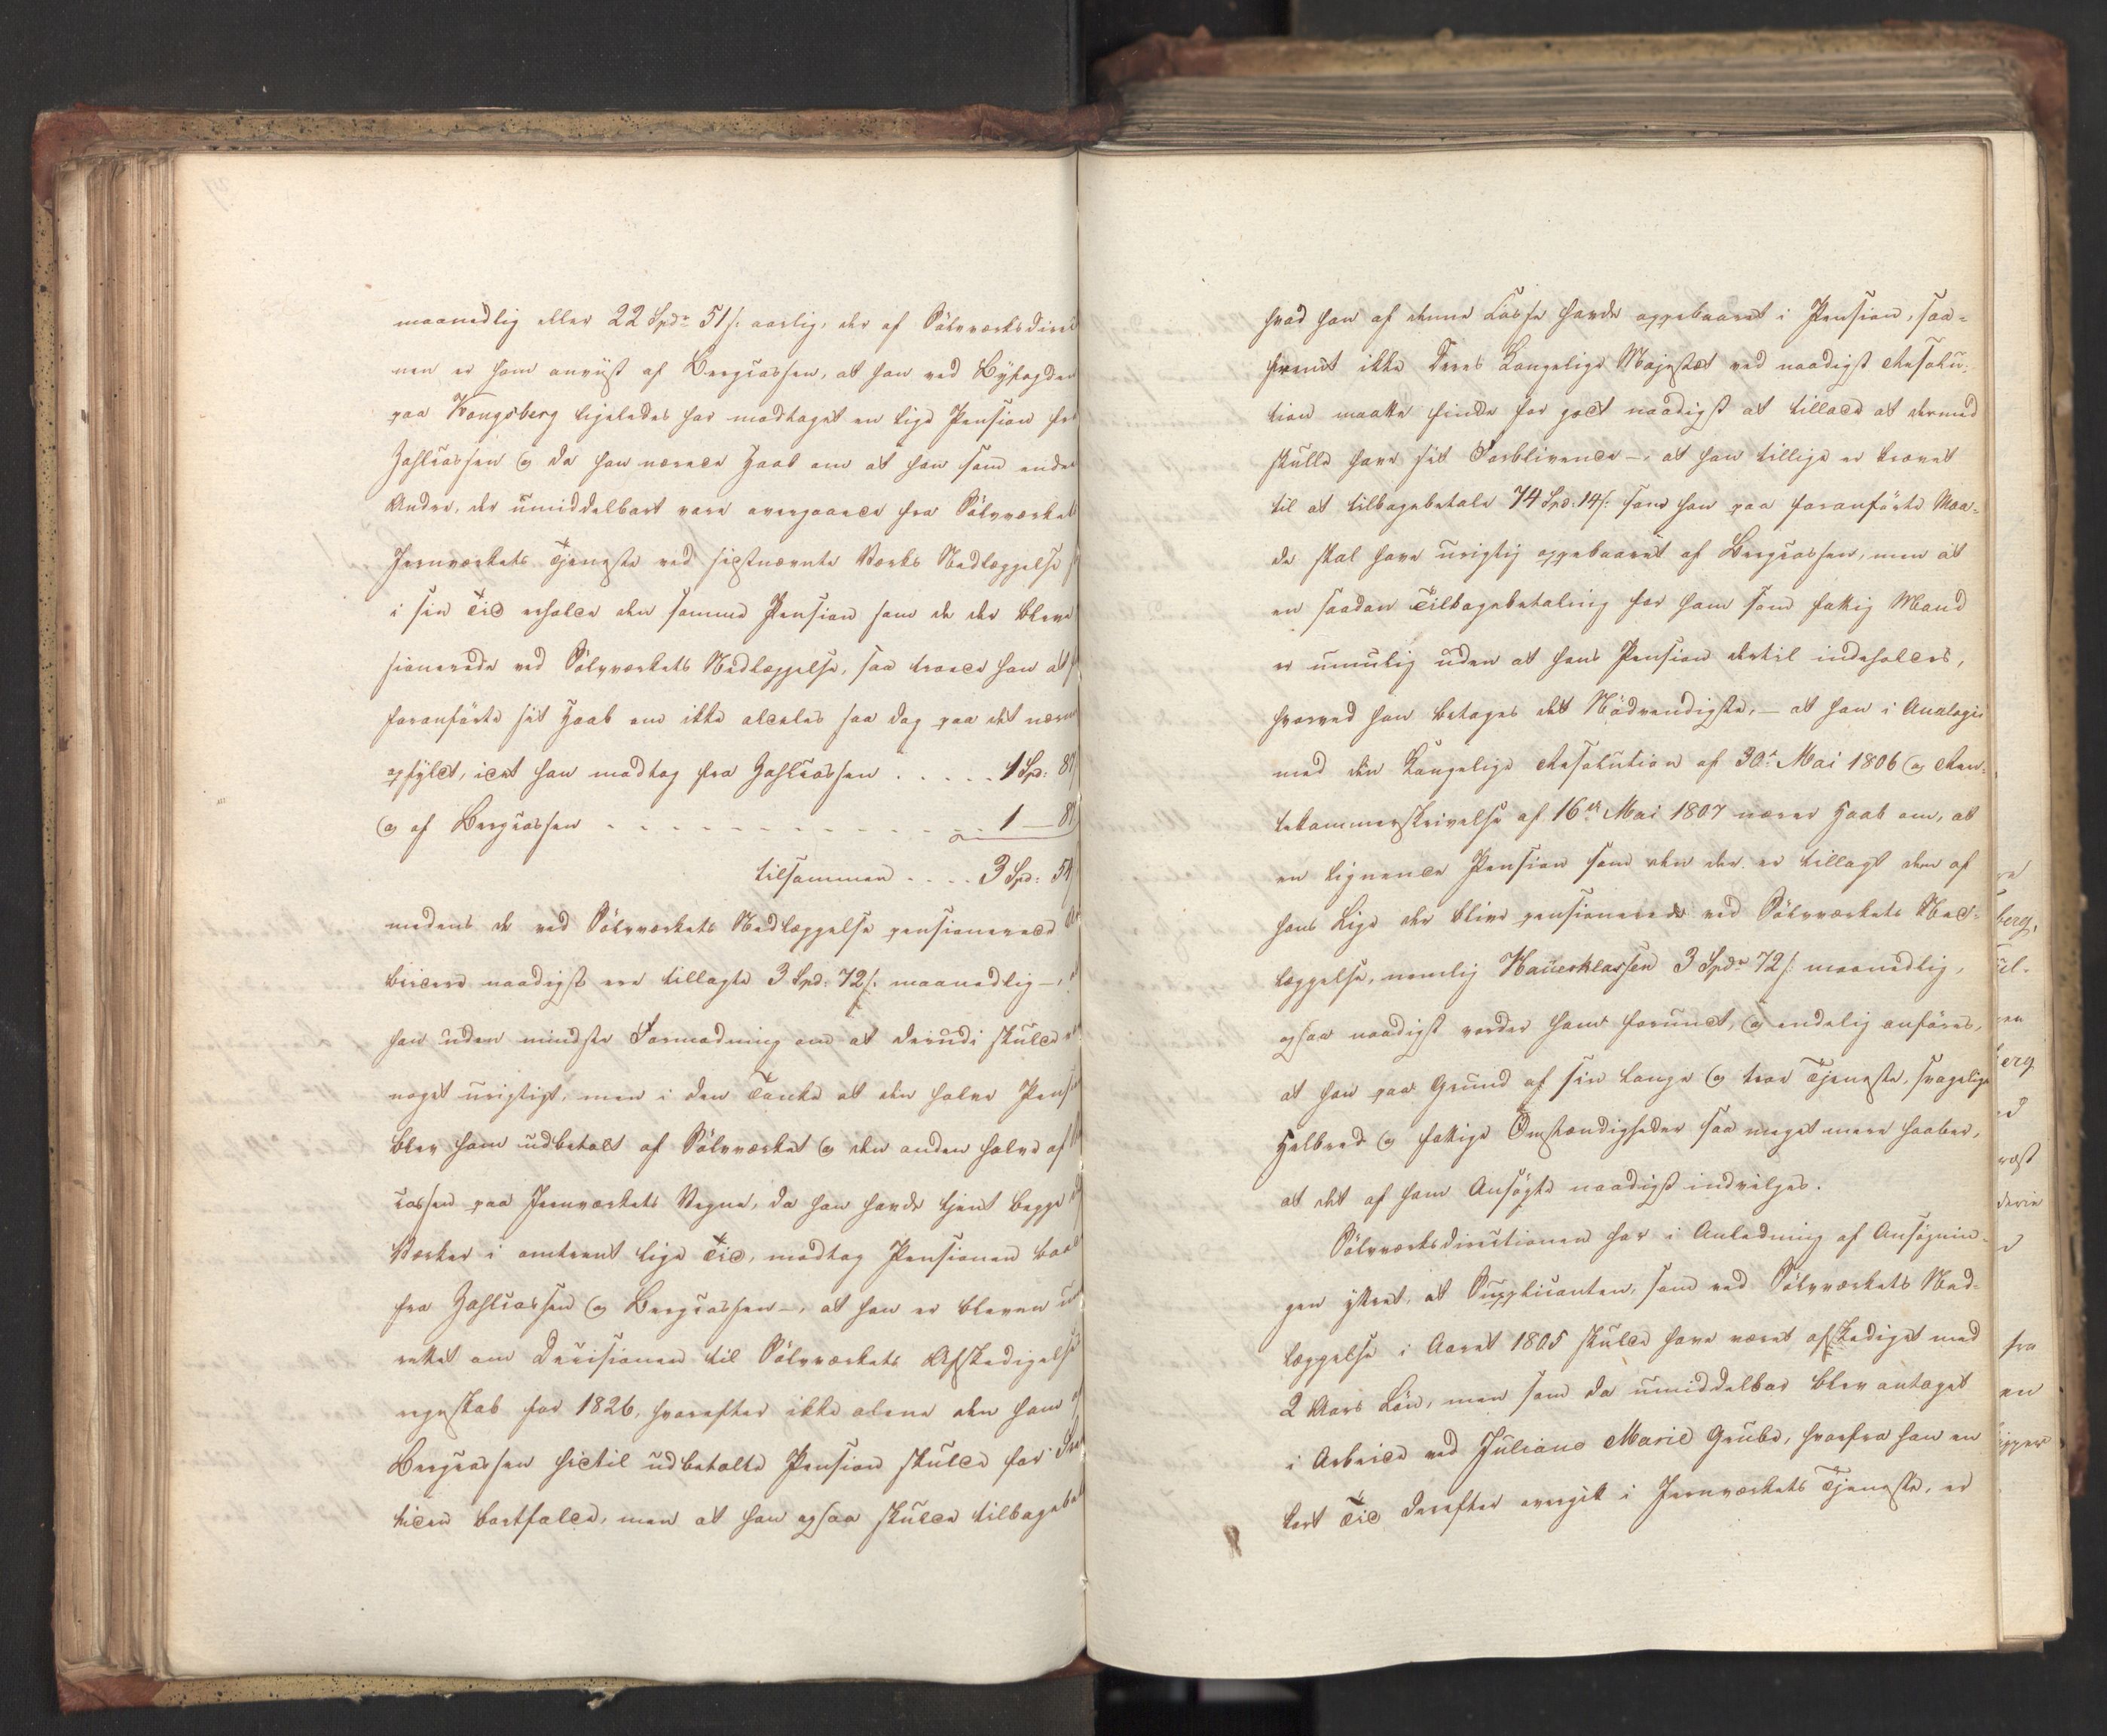 maanedlig eller 22 Spdr 51 s. aarlig, der af Sölvværksdirec
nen er ham anviist af Bergcassen, at han ved Byfogden
paa Kongsberg ligeledes har modtaget en lige Pension fra
Zahlcassen og da han nærede Haab om at han som endee
Andre, der umiddelbart vare overgaaede fra Sölvværket
Jernværkets Tjeneste ved sidstnævnte Værks Nedlæggelse
i sin Tid erholde den samme Pension som de der bleve
sionerede ved Sölvværkets Nedlæggelse, saa troede han at
foranförte sit Haab om ikke aldeles saa dog paa det nærm
opfyldt, idet han modtog fra Zahlcassen . . . . . 1 Spd: 87
og af Bergcassen . . . . . . . . . . . . 1 — 87
tilsammen . . . . 3 Spd: 54
medens de ved Sölvværkets Nedlæggelse pensionerede Ar
beidere naadigst ere tillagte 3 Spd: 72 s. maanedlig —, at
han uden mindste Formodning om at derudi skulde
noget urigtigt, men i den Tanke at den halve Pens
blev ham udbetalt af Sölvværket og den anden halve af
cassen paa Jernværkets Vegne, da han havde tjent begge
Værker i omtrent lige Tid, modtog Pensionen baa
fra Zahlcassen og Bergcassen —, at han er bleven un
rettet om Decisionen til Sölvværkets Afskedigelses
regnskab for 1826, hvorefter ikke alene den ham af
Bergcassen hidtil udbetalte Pension skulde for Frem
tiden bortfalde, men at han ogsaa skulde tilbagebet
hvad han af denne Casse havde oppebaaret i Pension, saa-
fremt ikke Deres Kongelige Majestæt ved naadigst Resolu-
tion maatte finde for godt naadigst at tillade at dermed
skulle have sit Forblivende —, at han tillige er krævet
til at tilbagebetale 74 Spd: 14 s. som han paa foranförte Maa-
de skal have urigtig oppebaaret af Bergcassen, men at
en saadan Tilbagebetaling for ham som fattig Mand
er umulig uden at hans Pension dertil indeholdes,
hvorved han betages det Nödvendigste, — at han i Analogie
med den Kongelige Resolution af 30te Mai 1806 og Ren-
tekammerskrivelse af 16de Mai 1807 nærer Haab om, at
en lignende Pension som den der er tillagt dem af
hans Lige der blive pensionerede ved Sölvværkets Ned-
læggelse, nemlig Hauerklassen 3 Spdr 72 s. maanedlig,
ogsaa naadigst vorder ham forundt, og endelig anföres,
at han paa Grund af sin lange og troe Tjeneste, svagelige
Helbred og fattige Omstændigheder saa meget mere haaber,
at det af ham Ansögte naadigst indvilges.
Sölvværksdirectionen har i Anledning af Ansögnin-
gen yttret, at Supplicanten, som ved Sölvværkets Ned-
læggelse i Aaret 1805 skulde have været afskediget med
2 Aars Lön, men som da umiddelbar blev antaget
i Arbeide ved Juliane Marie Grube, hvorfra han en
kort Tid derefter overgik i Jernværkets Tjeneste, er